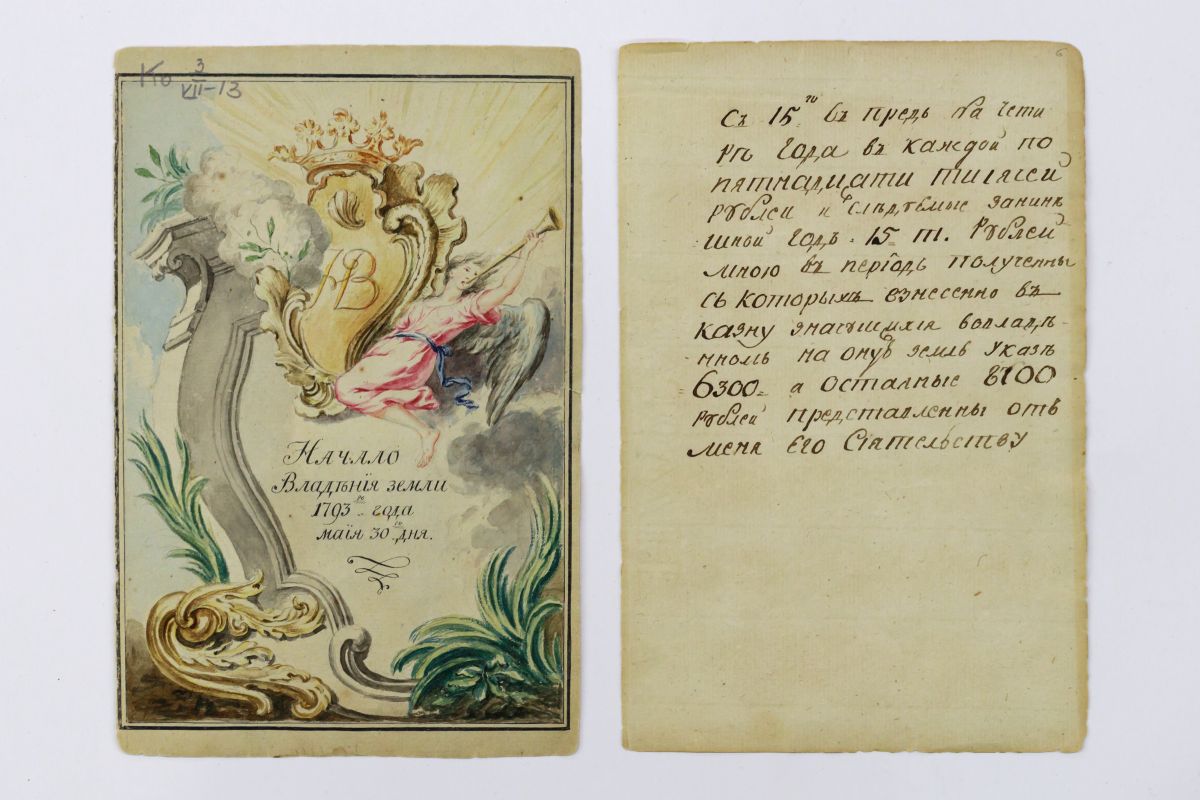 Ко 3/VII-13
НВ
Начало
Владѣнія земли
1793го года
маія 30го дня.
6
Съ 15го въ предь на чети
рѣ года въ каждой по
пятнадцати тисясей
рублей и слѣдуемые
шной годъ 15 т. рублей
мною въ періодъ полученны
съ которыхъ взнесенно въ
казну
нномъ на оную землю указѣ
6300 а осталные 8700
рублей представленны отъ
меня Его Сіательству